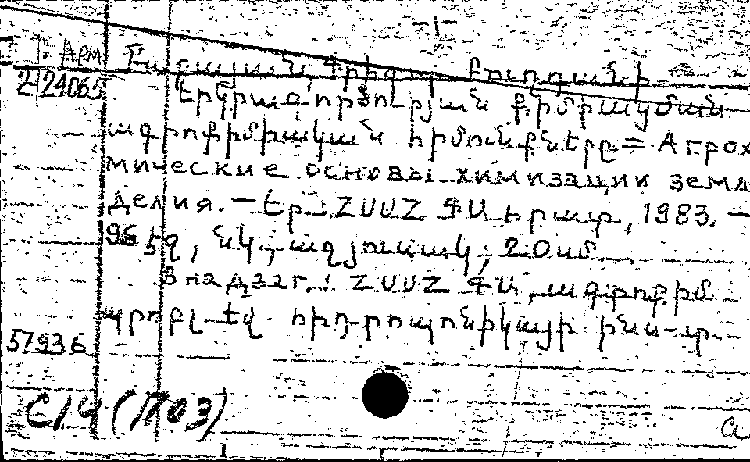 -1-
Арм
2-24065
Երկրագործության քիմիացման
ագրոքիմիական հիմունքները= Агрохи
мические основы химизации земле
делия.- Եր.: ՀՍՍՀ ԳԱ հրատ, 1983.-
96 էջ, նկ., աղյուսակ; 20սմ
В надзаг.: ՀՍՍՀ ԳԱ, ագրոքիմ
պրոբլ. եվ հիդրոպոնիկայի ինս-տ.
57936
С14(П03)
а